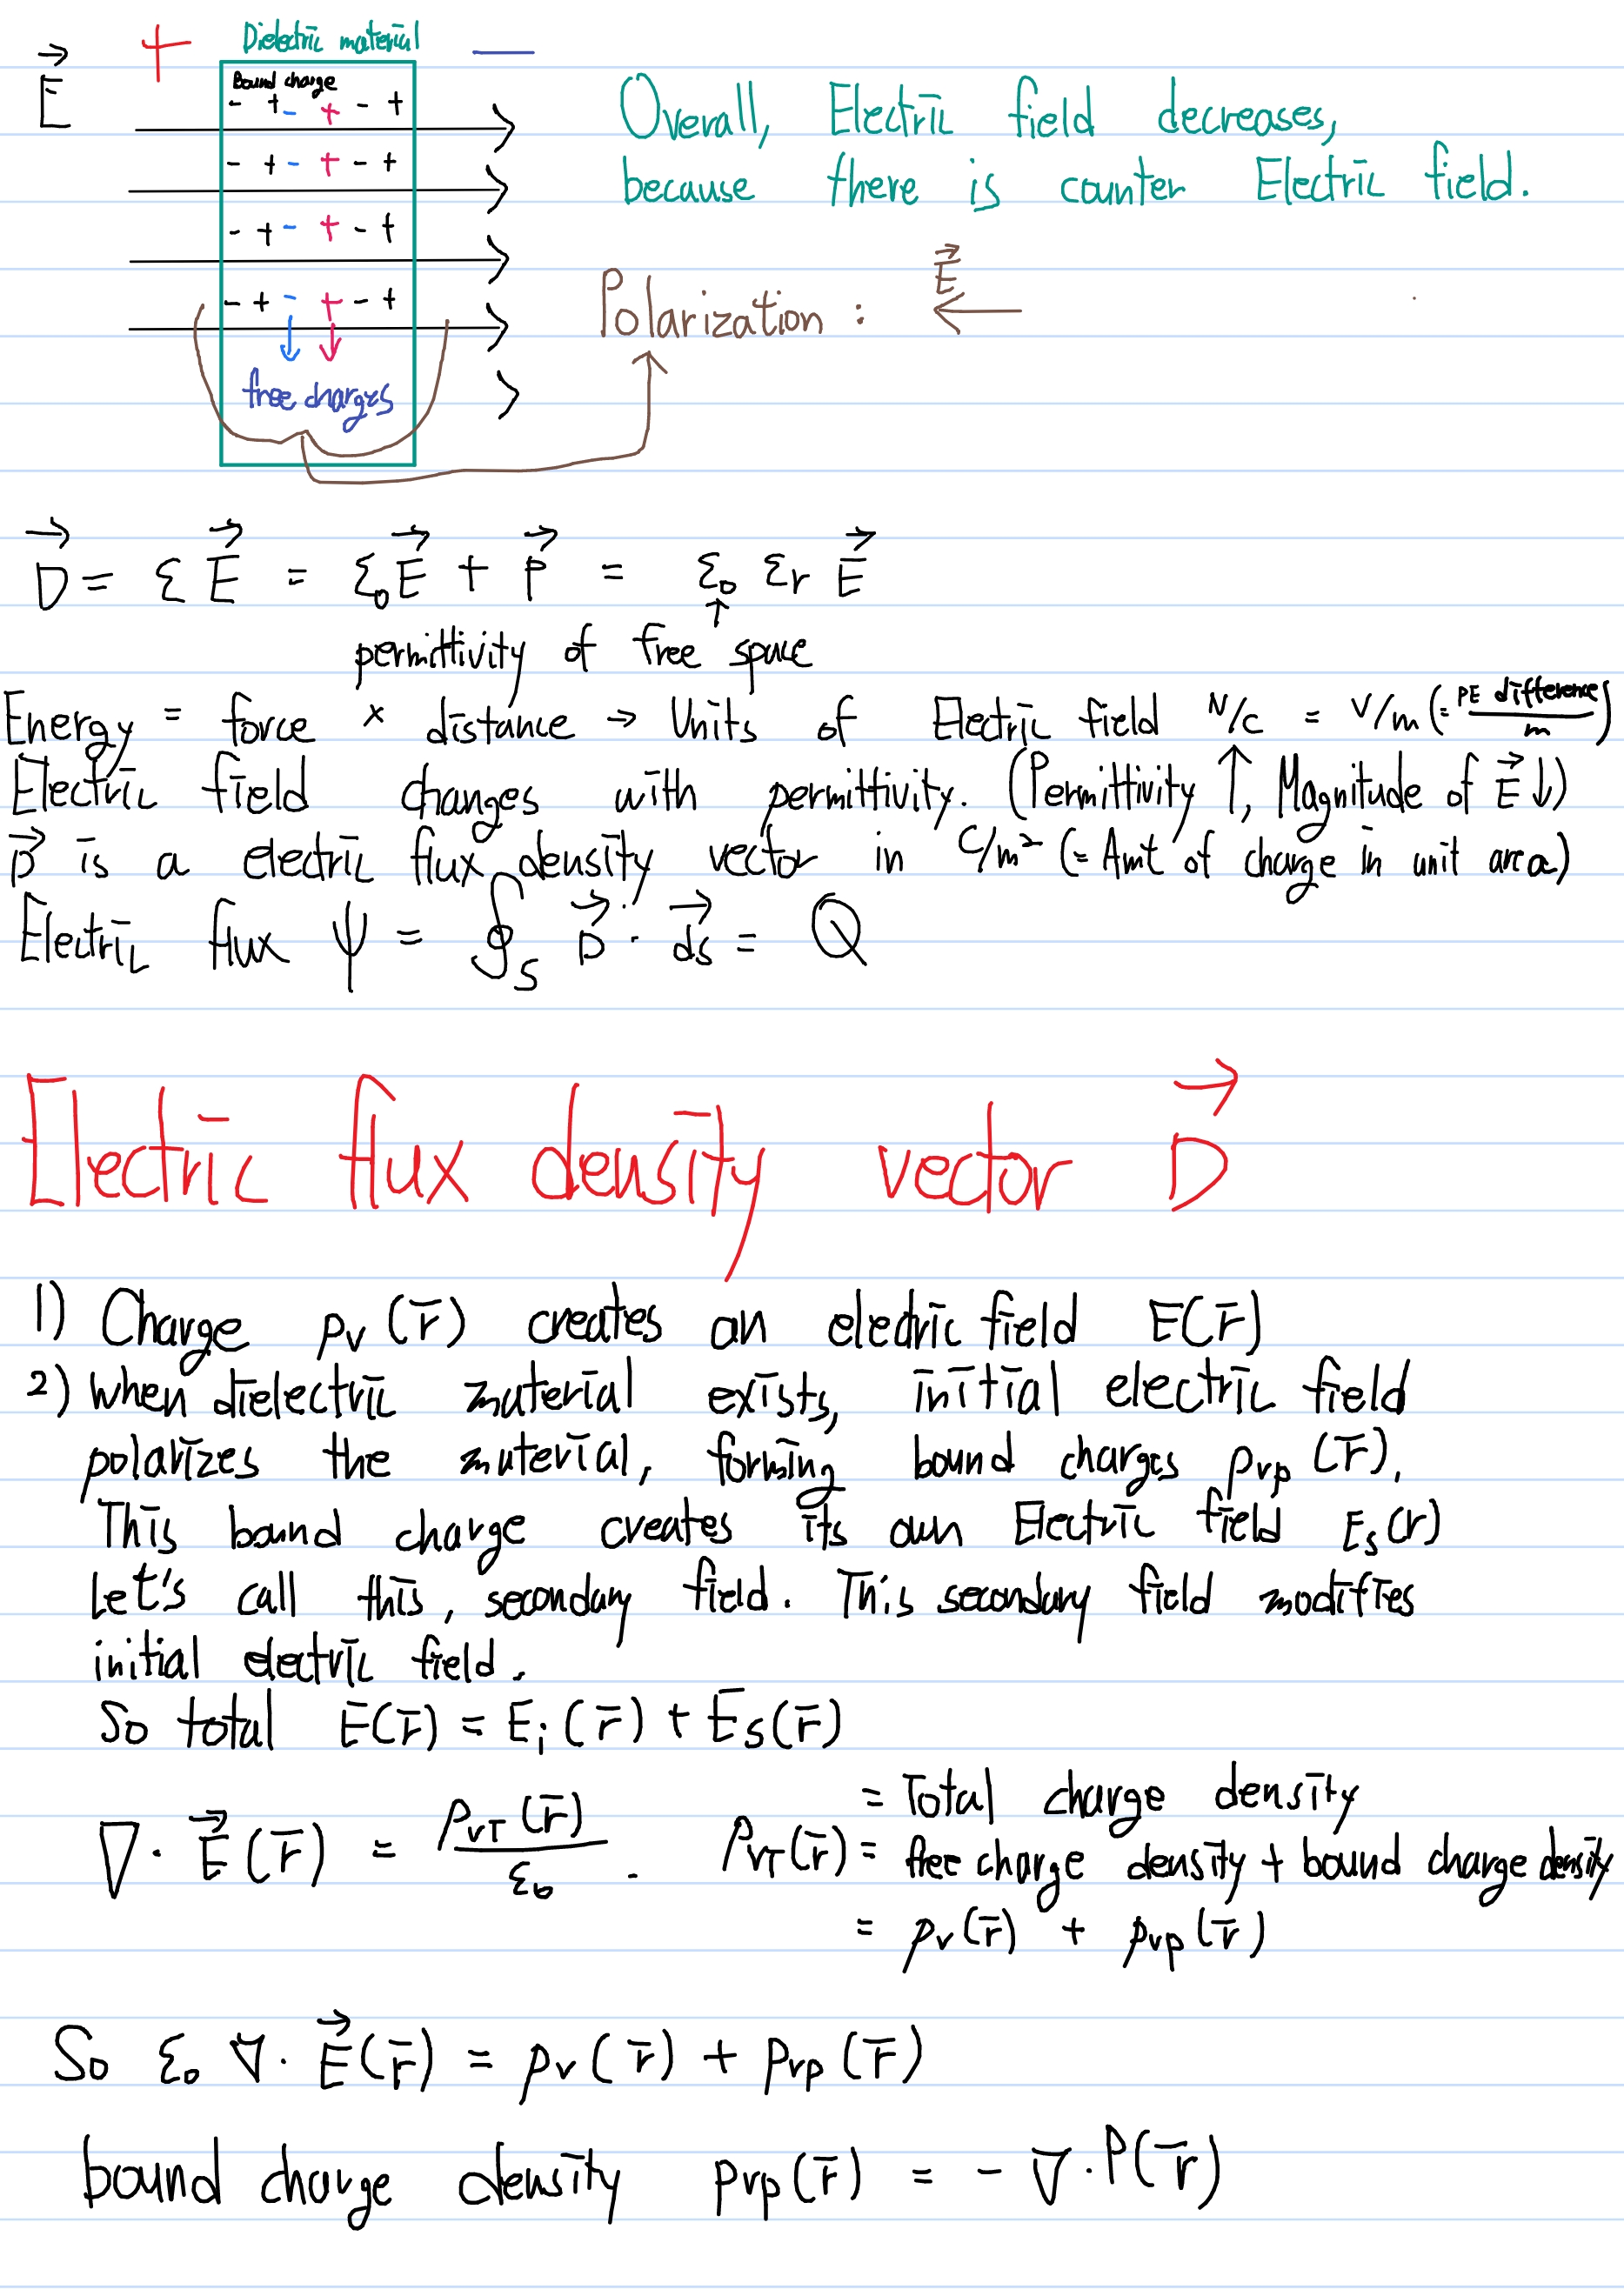 E⃗ + Dielectric material —
Bound charge
- + - + - +
- + - + - +
- + - + - +
- + - + - +
free charges
Overall, Electric field decreases,
because there is counter Electric field.
Polarization : E⃗ ←
D⃗ = ε E⃗ = ε₀ E⃗ + P⃗ = ε₀ εr E⃗
↑
permittivity of free space
Energy = force × distance → Units of Electric field N/C = V/m (= PE difference / m)
Electric field changes with permittivity. (Permittivity ↑, Magnitude of E⃗ ↓)
D⃗ is a electric flux density vector in C/m² (= Amt of charge in unit area)
Electric flux ψ = ∮s D⃗ · ds⃗ = Q
Electric flux density vector D⃗
1) Charge ρv(r̅) creates an electric field E(r̅)
2) When dielectric material exists, initial electric field
polarizes the material, forming bound charges ρvp(r̅).
This bound charge creates its own Electric field Es(r)
Let's call this, secondary field. This secondary field modifies
initial electric field.
So total E(r̅) = Ei(r̅) + E̅s(r̅)
= Total charge density
∇ · E⃗(r̅) = ρvT(r̅) / ε₀ . ρvT(r̅) = free charge density + bound charge density
= ρv(r̅) + ρvp(r̅)
So ε₀ ∇ · E⃗(r̅) = ρv(r̅) + ρvp(r̅)
bound charge density ρvp(r̅) = - ∇ · P(r̅)